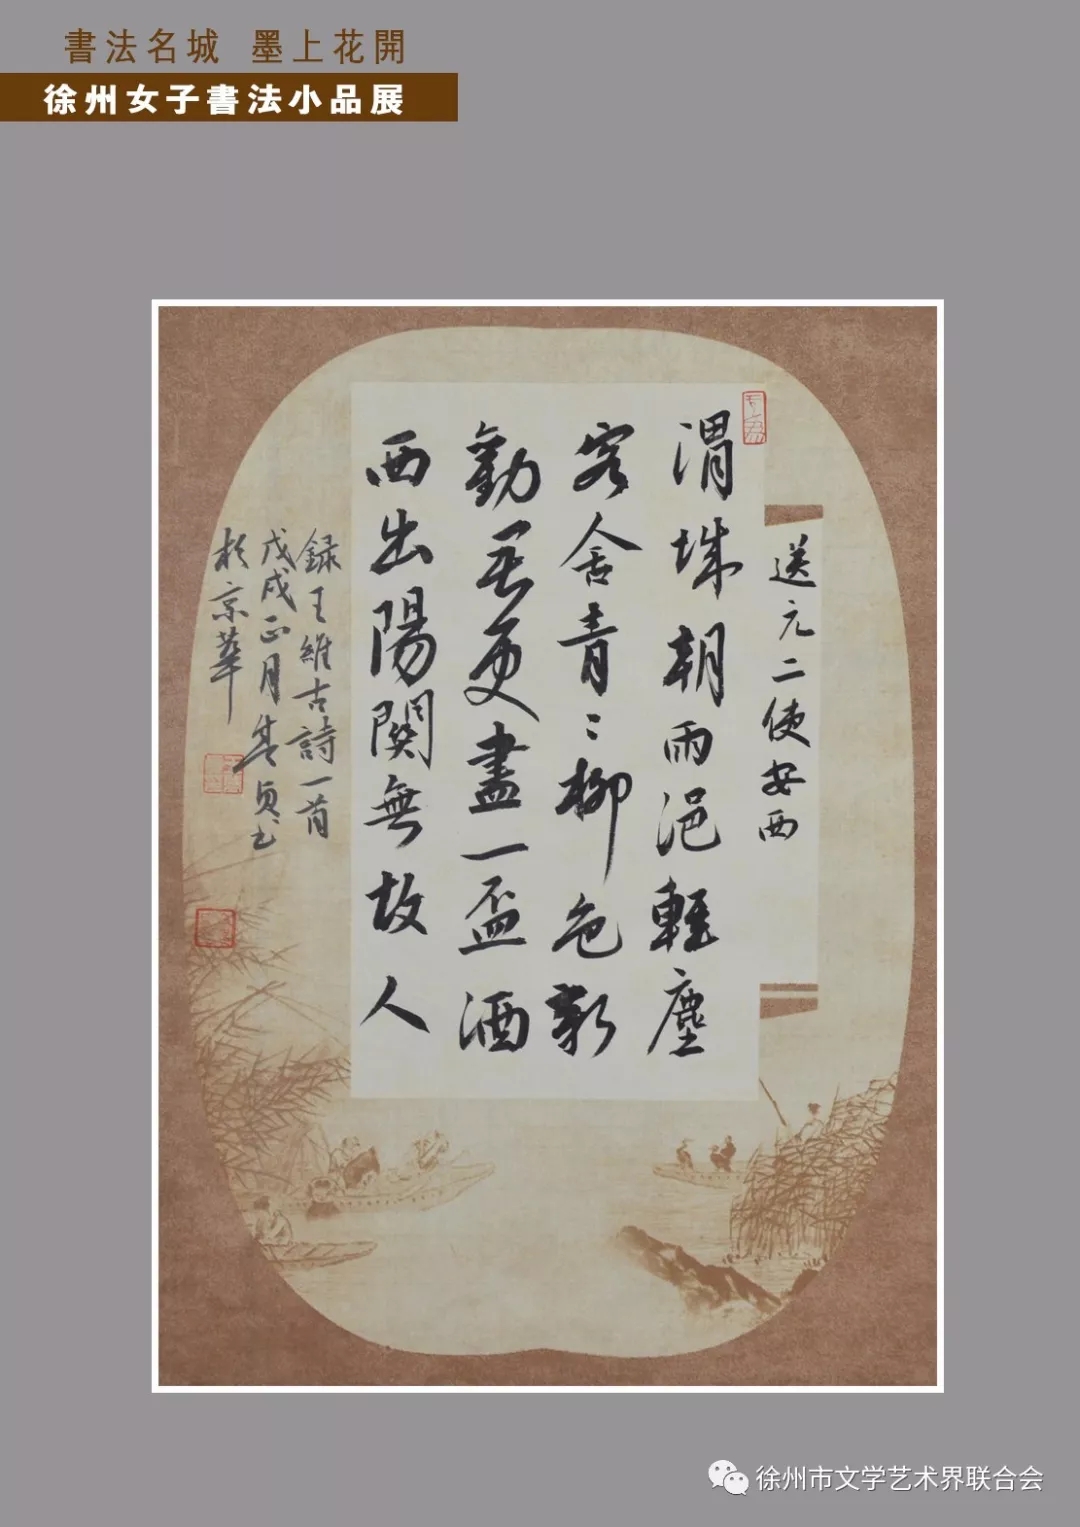 書法名城 墨上花開
徐州女子書法小品展
送元二使安西
渭城朝雨浥輕塵
客舍青〻柳色新
勸君更盡一盃酒
西出陽関無故人
録王維古詩一首
戊戌正月 貞书
於京華
徐州市文学艺术界联合会